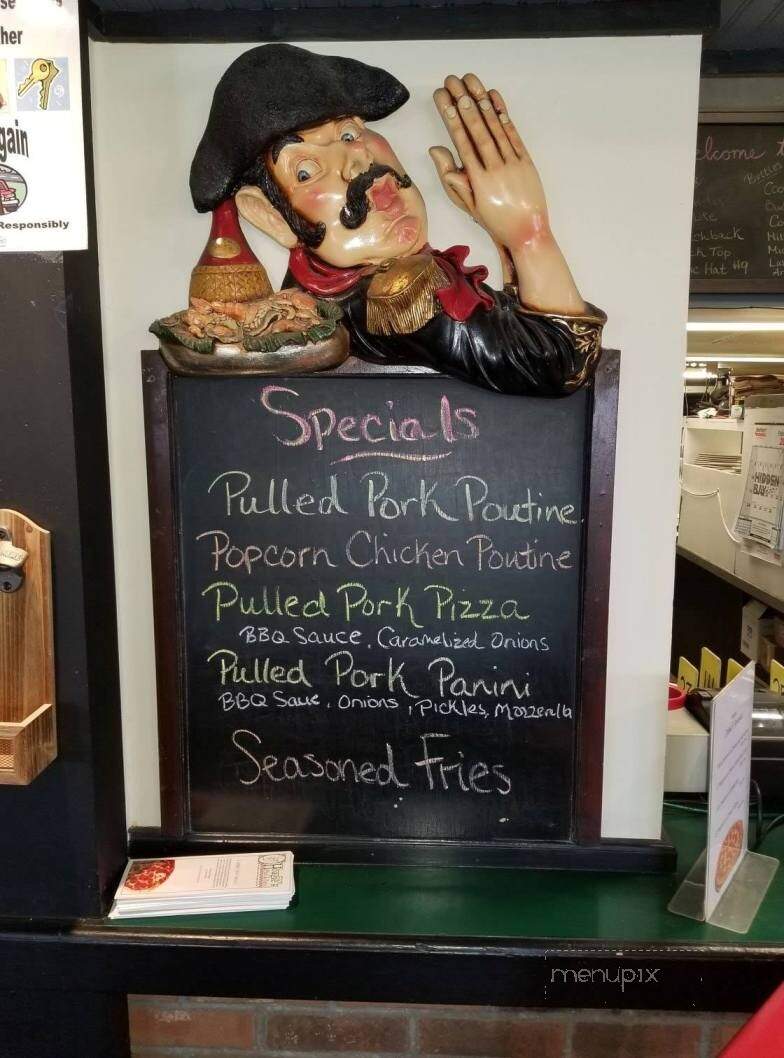 her
gain
Responsibly
elcome
Bottles
chback
k Top
c Hat #9
HIDDEN
BAY
Specials
Pulled Pork Poutine
Popcorn Chicken Poutine
Pulled Pork Pizza
BBQ Sauce, Caramelized Onions
Pulled Pork Panini
BBQ Saue, Onions, Pickles, Mozzerella
Seasoned Fries
menupix